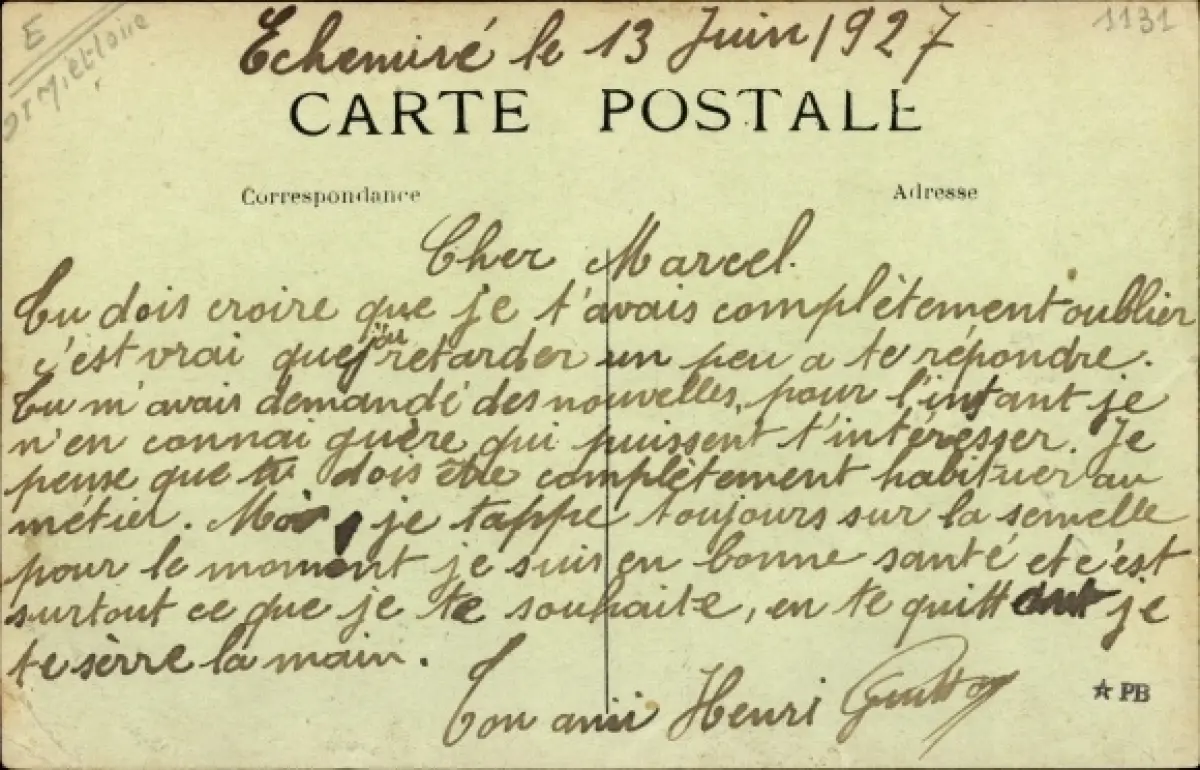 E
1131
Echemiré le 13 Juin 1927
CARTE POSTALE
Correspondance
Adresse
Cher Marcel.
Tu dois croire que je t'avais complètement oublier
c'est vrai que j'ai retarder un peu a te répondre.
Tu m'avais demandé des nouvelles, pour l'instant je
n'en connai guère qui puissent t'intéresser. Je
pense que tu dois être complètement habituer au
métier. Moi, je tappe toujours sur la semelle
pour le moment je suis en bonne santé et c'est
surtout ce que je te souhaite, en te quittant je
te serre la main.
Ton ami Henri
☆ PB